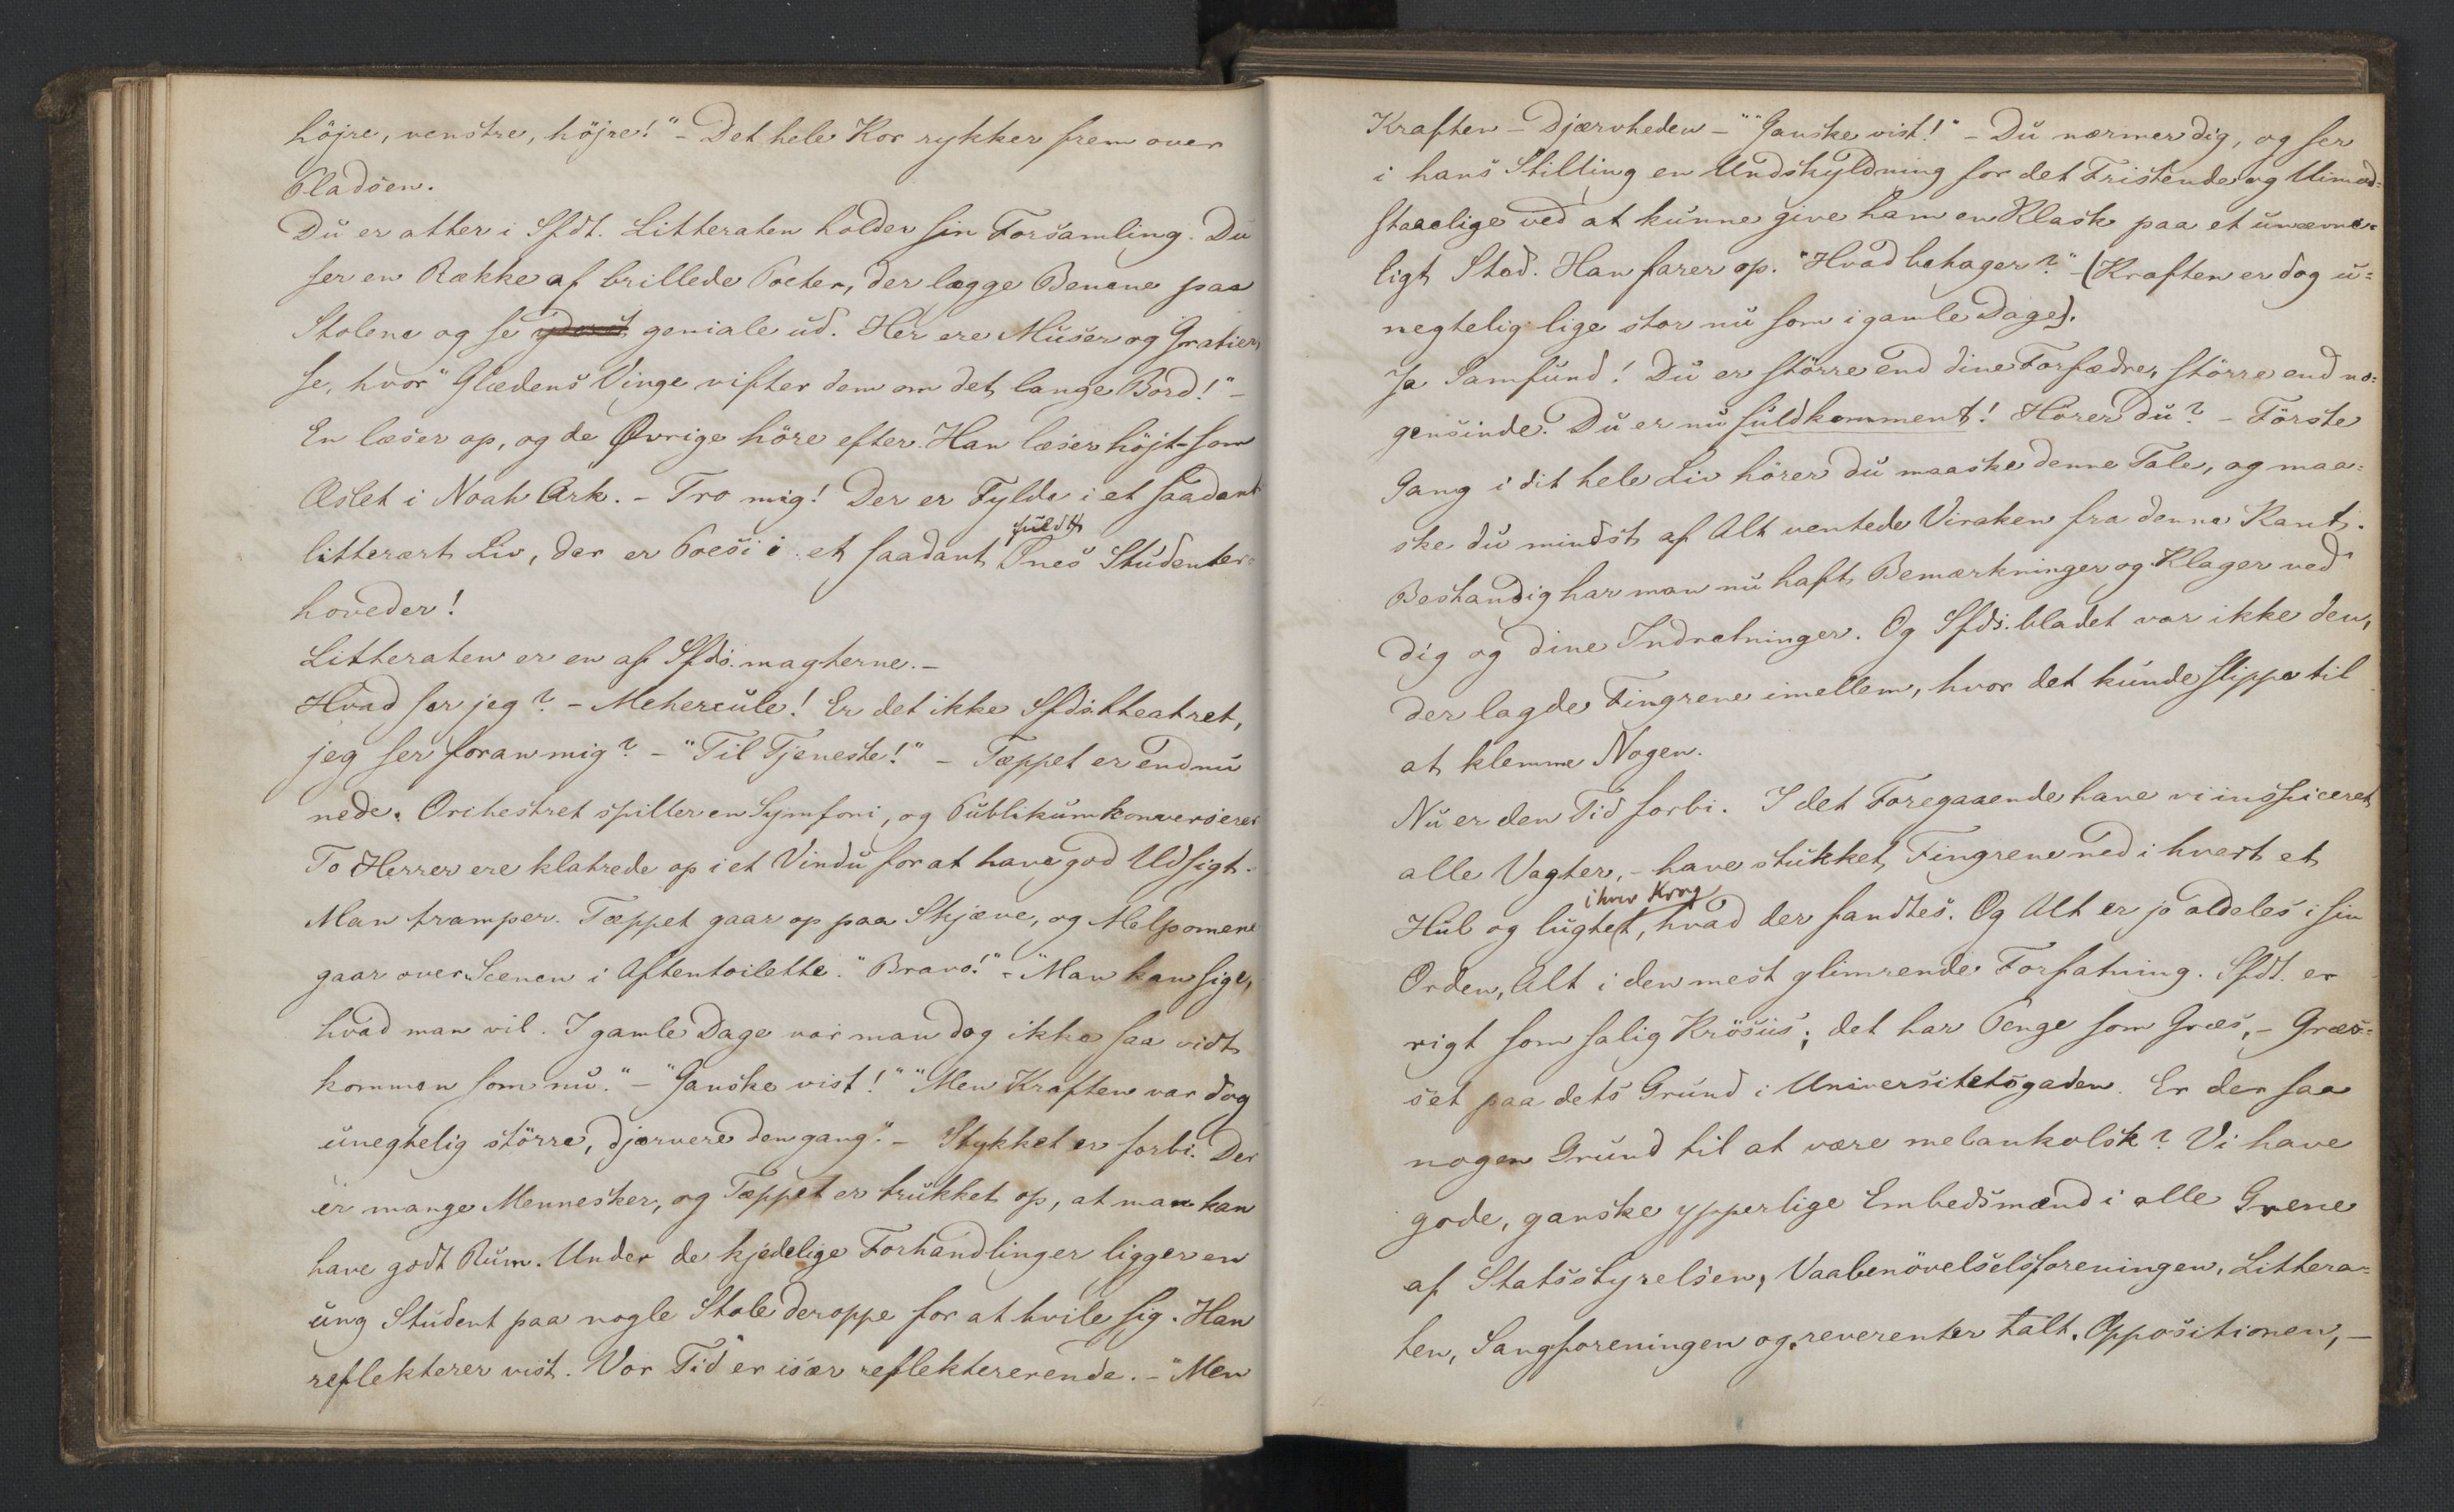 höjre, venstre, höjre!" - Det hele Kor rykker frem over
Pladsen.
Du er atter i Sfdt. Litteraten holder sin Forsamling. Du
ser en Række af brillede Poeter, der lægge Benene paa
Stolene og se geniale ud. Her ere Muser og Gratier,
se, hvor "Glædens Vinge vifter dem om det lange Bord!" -
En læser op, og de Øvrige höre efter. Han læser höjt som
Æslet i Noah Ark. - Tro mig! Der er Fylde i et saadant
litterært Liv, der er Poesi i et saadant
fuldt
Snes Studenter-
hoveder!
Litteraten er en af Sfds. magterne. -
Hvad ser jeg? - Mehercule! Er det ikke Sfdstheatret,
jeg ser foran mig? - "Til Tjeneste!" - Tæppet er endnu
nede. Orchestret spiller en Symfoni, og Publikum konverserer
To Herrer ere klatrede op i et Vindu for at have god Udsigt.
Man tramper. Tæppet gaar op paa Skjæve, og Melpomene
gaar over Scenen i Aftentoilette. "Bravo!" - "Man kan sige,
hvad man vil. I gamle Dage var man dog ikke saa vidt
kommen som nu." - "Ganske vist!" "Men Kraften var dog
unegtelig större, djærvere dengang." - Stykket er forbi. Der
er mange Mennesker, og Tæppet er trukket op, at man kan
have godt Rum. Under de kjedelige Forhandlinger ligger en
ung Student paa nogle Stole deroppe for at hvile sig. Han
reflekterer vist. Vor Tid er især reflekterende. - "Men
Kraften - Djærvheden - "" Ganske vist!" - Du nærmer dig, og ser
i hans Stilling en Undskyldning for det Fristende og Uimod-
staaelige ved at kunne give ham en Klask paa et unævne-
ligt Sted. Han farer op. "Hvad behager?" - (Kraften er dog u-
negtelig lige stor nu som i gamle Dage).
Ja Samfund! Du er större end dine Forfædre, större end no-
gensinde. Du er nu fuldkomment! Hörer du? - Förste
Gang i dit hele Liv hörer du maaske denne Tale, og maa-
ske du mindst af Alt ventede Viraken fra denne Kant.
Bestandig har man nu haft Bemærkninger og Klager ved
dig og dine Indretninger. Og Sfds. bladet var ikke den,
der lagde Fingrene imellem, hvor det kunde slippe til
at klemme Nogen.
Nu er den Tid forbi. I det Foregaaende have vi inspiceret
alle Vagter, - have stukket Fingrene ned i hvert et
i hver Krog
Hul og lugtet, hvad der fandtes. Og Alt er jo aldeles i sin
Orden, Alt i den mest glimrende Forfatning. Sfdt. er
rigt som salig Krösus; det har Penge som Græs, - Græs-
set paa dets Grund i Universitetsgaden. Er der saa
nogen Grund til at være melankolsk? Vi have
gode, ganske ypperlige Embedsmænd i alle Grene
af Statsstyrelsen, Vaabenövelselsforeningen, Littera-
ten, Sangforeningen og, reverenter talt, Oppositionen, -